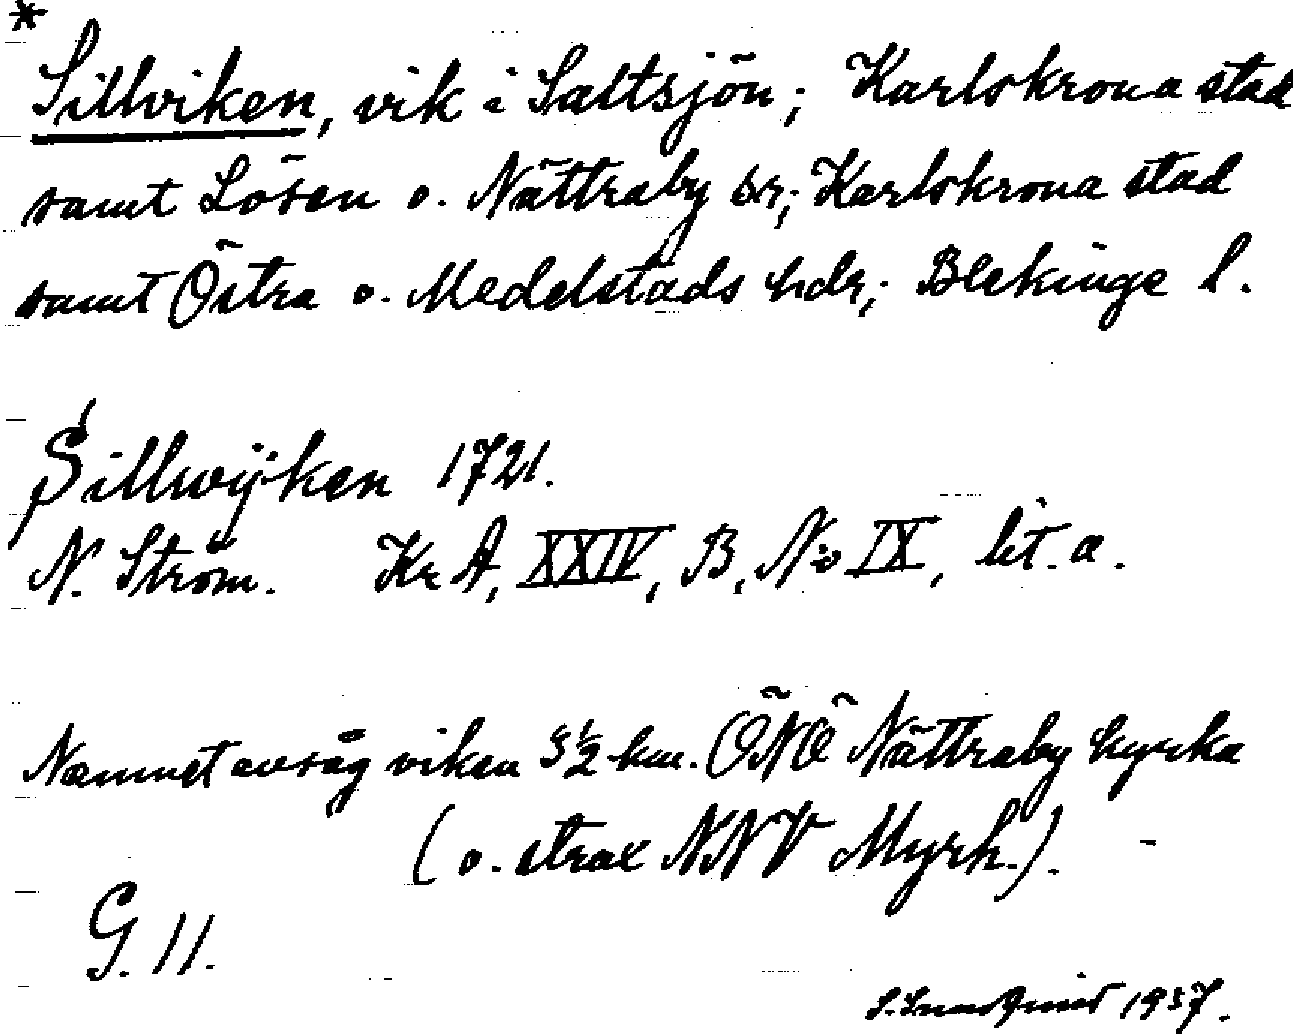 *
Sillviken, vik i Saltsjön; Karlskrona stad
samt Lösen o. Nättraby sr; Karlskrona stad
samt Östra o. Medelstads hdr; Blekinge l.
Sillwijken 1721.
N. Ström. Kr A, XXIV, B, No IX, lit. a.
Namnet avsåg viken 3½ km. ÖNÖ Nättraby kyrka
(o. strax NNV Myrh.).
G. 11.
1937.